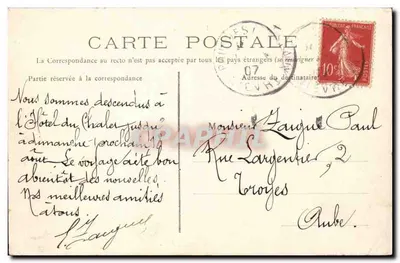 CARTE POSTALE
La Correspondance au recto n'est pas acceptée par tous les pays étrangers
Partie réservée à la correspondance
Adresse du destinataire
Nous sommes descendus à
l'Hôtel du Chalet jusqu'
à dimanche prochain
août. Le voyage a été bon
a bientôt des nouvelles.
Nos meilleures amitiés
a tous
Monsieur Zaigue Paul
Rue Largentier, 2
Troyes
Aube.
10
07